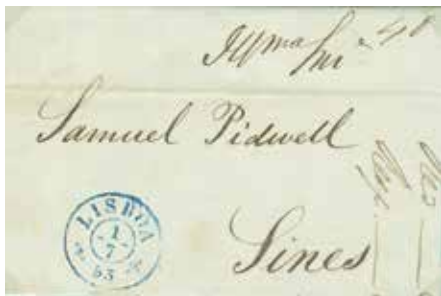 Illmo Snr
Samuel Pidwell
Sines
LISBOA
1
7
53